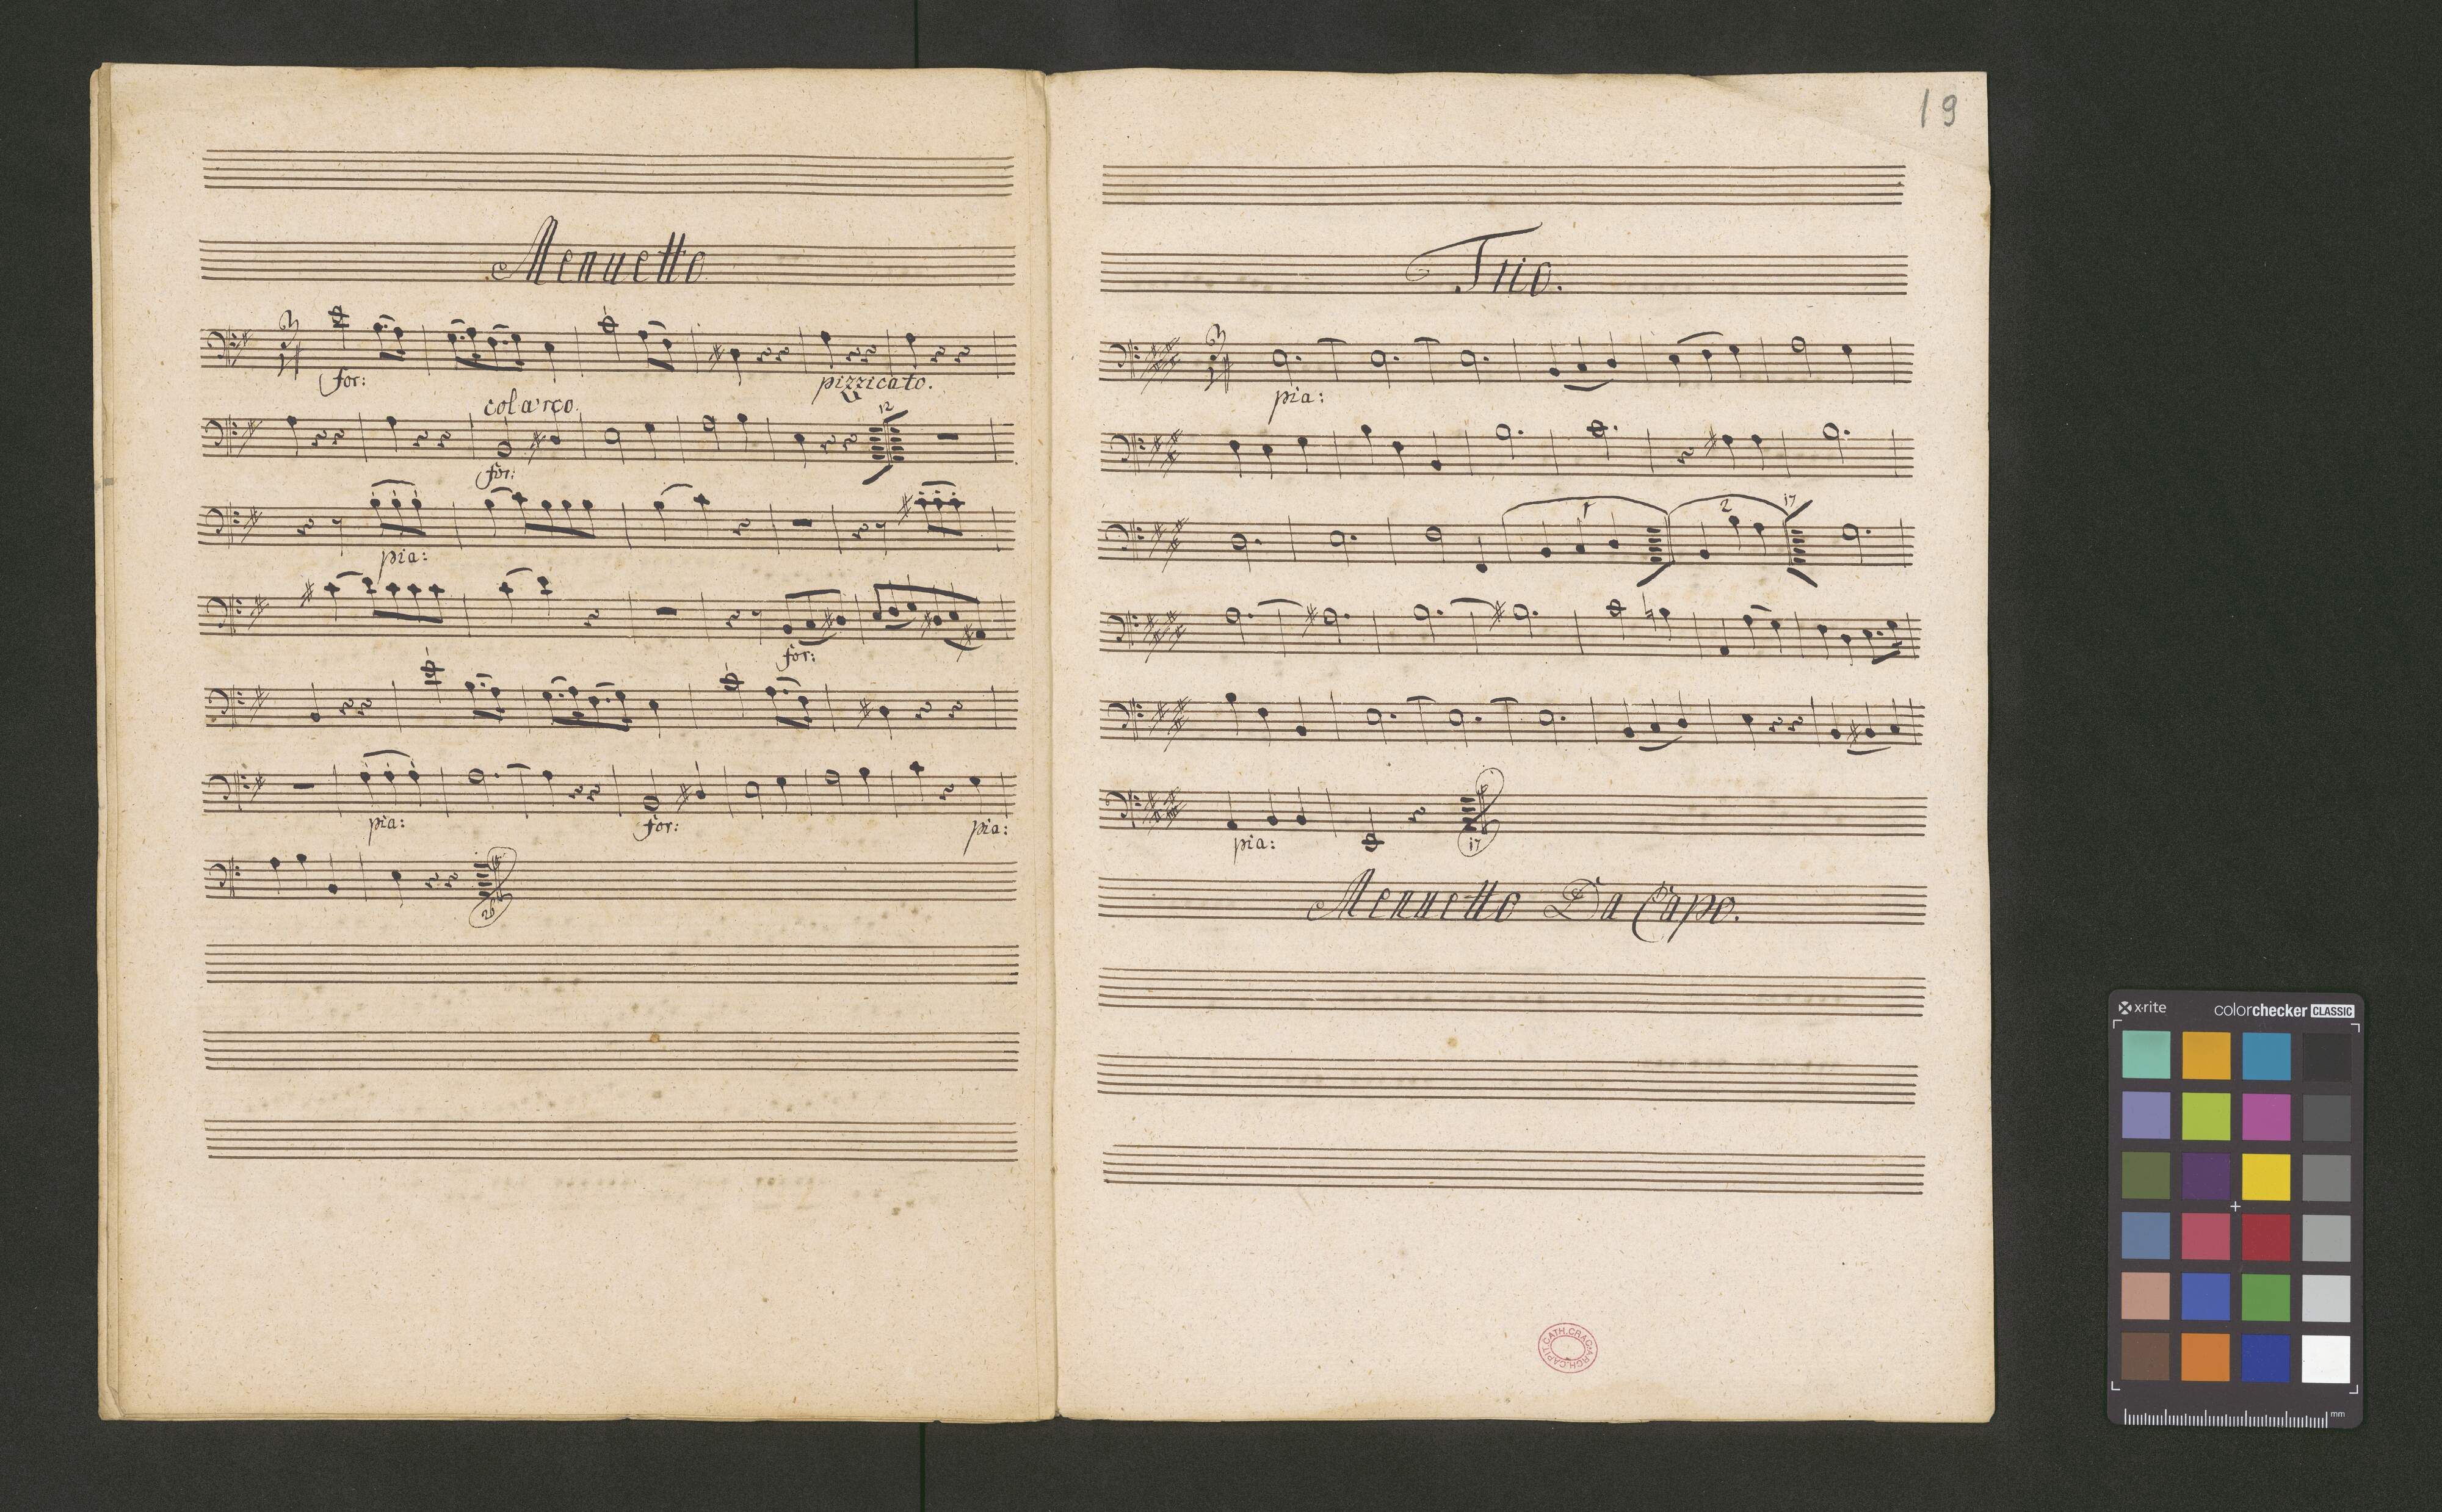 Menuetto
3
for:
pizzicato.
col arco.
12
for:
pia:
for:
pia:
for:
pia:
26
19
Trio.
3
pia:
1
2
17
pia:
17
Menuetto Da Capo.
ARCH. CAPIT. CATH. CRAC.
x-rite
colorchecker CLASSIC
mm